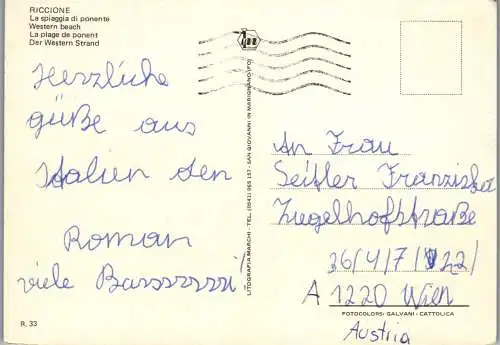 RICCIONE
La spiaggia di ponente
Western beach
La plage de ponent
Der Western Strand
Herzliche
güße aus
Italien den
Roman
viele Basssssssi!
R. 33
LITOGRAFIA MARCHI - TEL. (0541) 955 157 - SAN GIOVANNI IN MARIGNANO (FO)
An Frau
Seitler Franziska
Zugelhofstraße
36/4/7/22/
A 1220 Wien
FOTOCOLORS: GALVANI - CATTOLICA
Austria